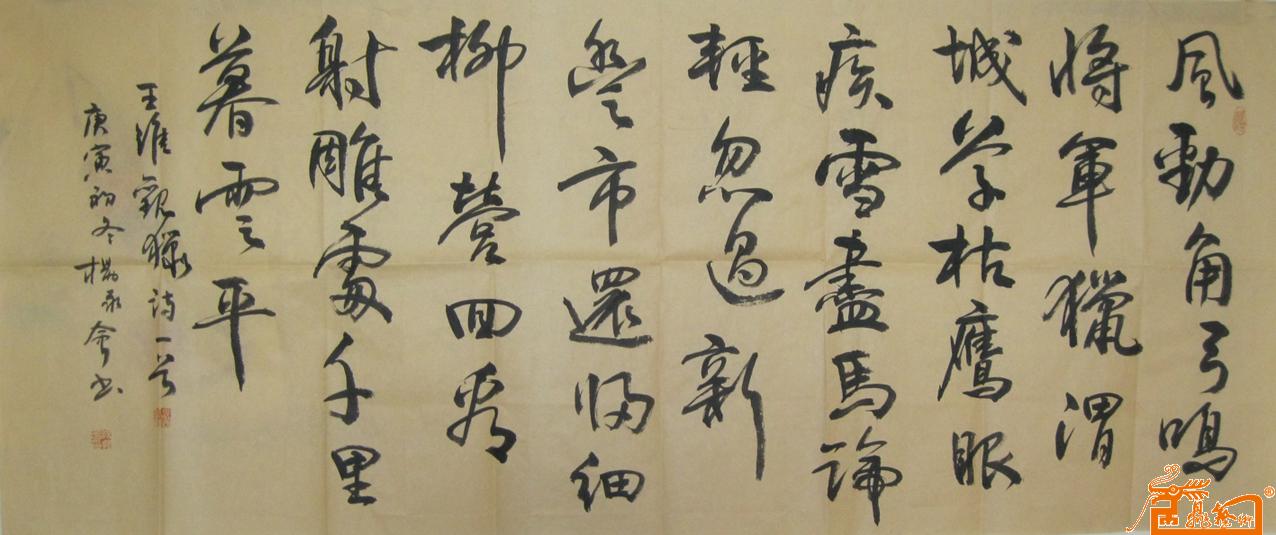 風勁角弓鳴
將軍獵渭
城草枯鷹眼
疾雪盡馬蹄
輕忽過新
豐市還歸細
柳營回看
射雕處千里
暮雲平
王維觀獵詩一首
庚寅初冬楊